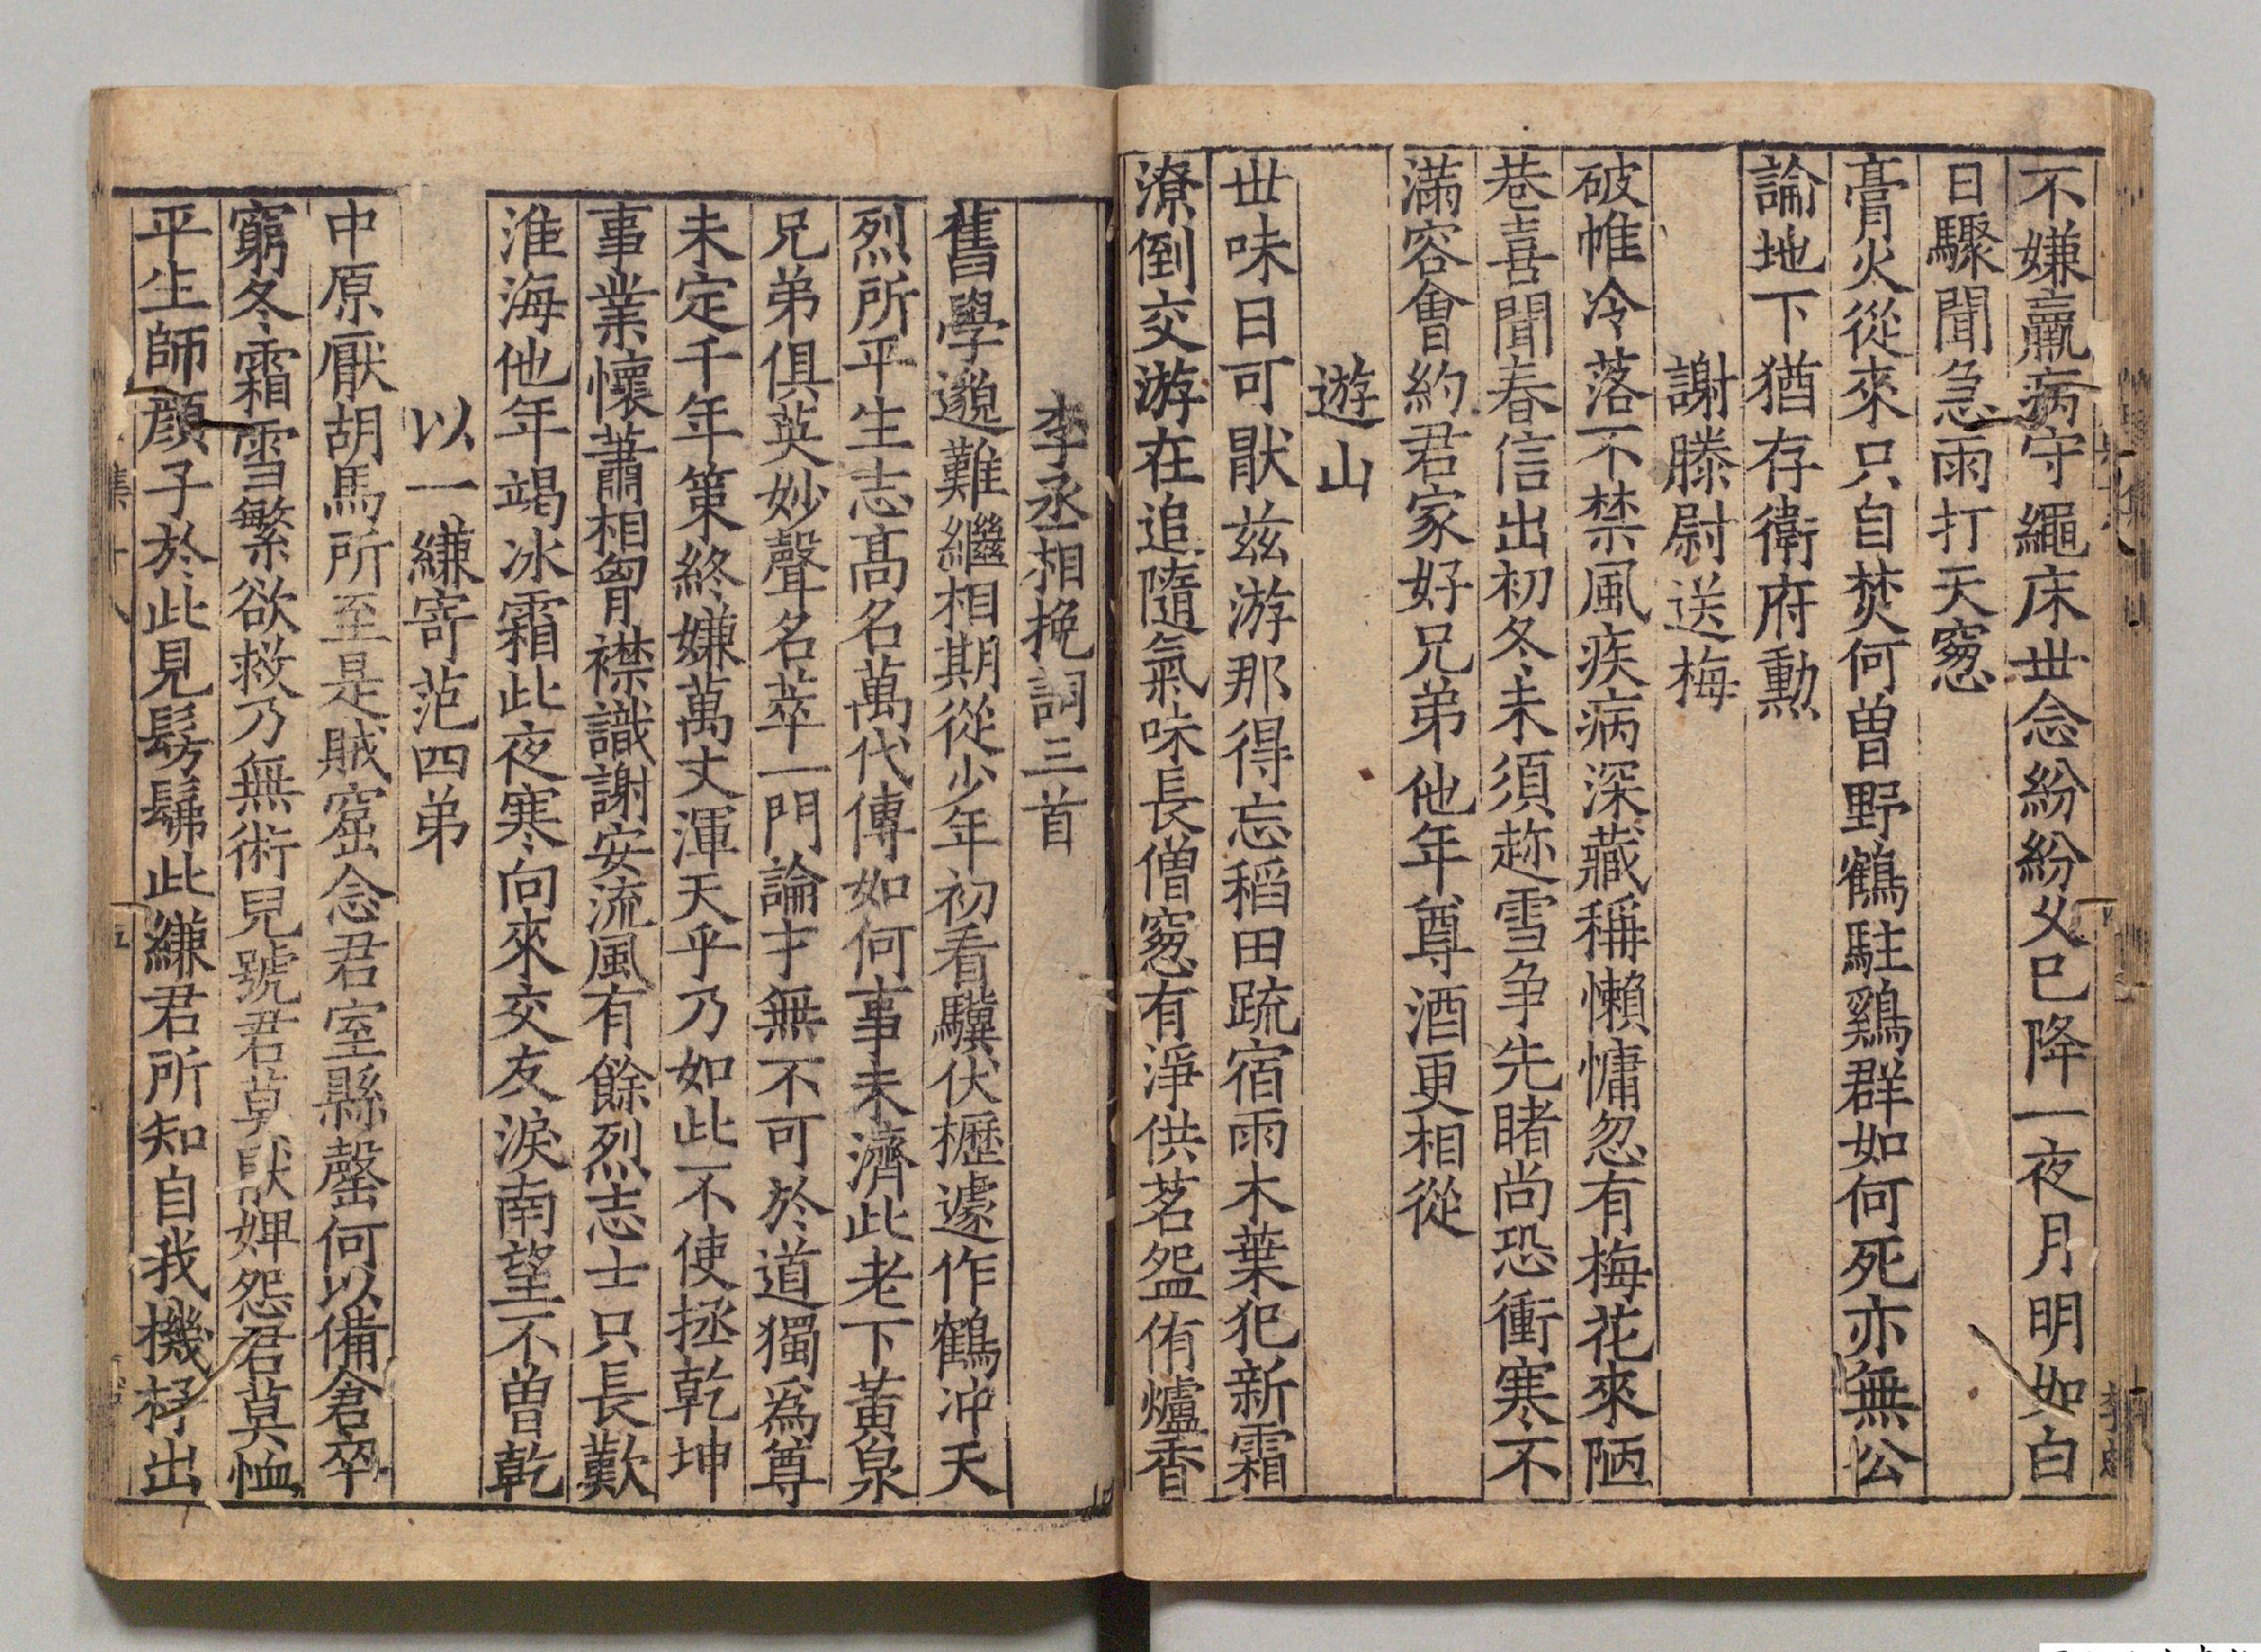 不嫌羸病守繩床丗念紛紛久已降一夜月明如白
日驟聞急雨打天窓
膏火從來只自焚何曽野鶴駐鷄群如何死亦無公
論地下猶存衛府勳
謝滕尉送梅
破帷冷落不禁風疾病深藏稱懶慵忽有梅花來陋
巷喜聞春信出初冬未須趂雪争先睹尚恐衝寒不
滿容會約君家好兄弟他年尊酒更相從
遊山
丗味日可猒兹游那得忘稻田疏宿雨木葉犯新霜
潦倒交游在追隨氣味長僧窓有淨供茗盌侑爐香
李丞相挽詞三首
舊學邈難繼相期從少年初看驥伏櫪遽作鶴冲天
烈所平生志髙名萬代傳如何事未濟此老下黃泉
兄弟俱英妙聲名萃一門論才無不可於道獨為尊
未定千年策終嫌萬丈渾天乎乃如此不使拯乾坤
事業懷蕭相胷襟識謝安流風有餘烈志士只長歎
淮海他年竭冰霜此夜寒向來交友淚南望不曽乾
以一縑寄范四弟
中原厭胡馬所至是賊窟念君室縣罄何以備倉卒
窮冬霜雪繁欲救乃無術兒號君莫猒婢怨君莫恤
平生師顔子於此見髣髴此縑君所知自我機杼出